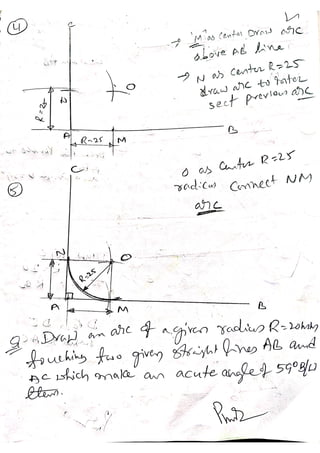 ④
C
→ "M" as center Draw arc
above AB line.
→ N as center R=25
draw arc to inter
sect previous arc
N
O
R=25
A
R=25
M
B
O as center R=25
radius connect NM
arc
⑤
C
N
O
R=25
A
M
B
Q Draw an arc of a given radius R=20mm
touching two given straight lines AB and
AC which make an acute angle of 59° B/W
them.